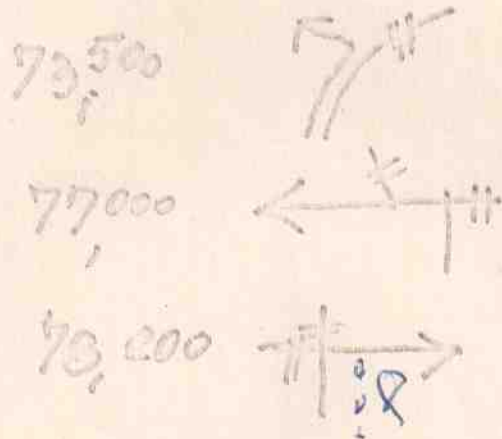 73,500
77,000
78,200